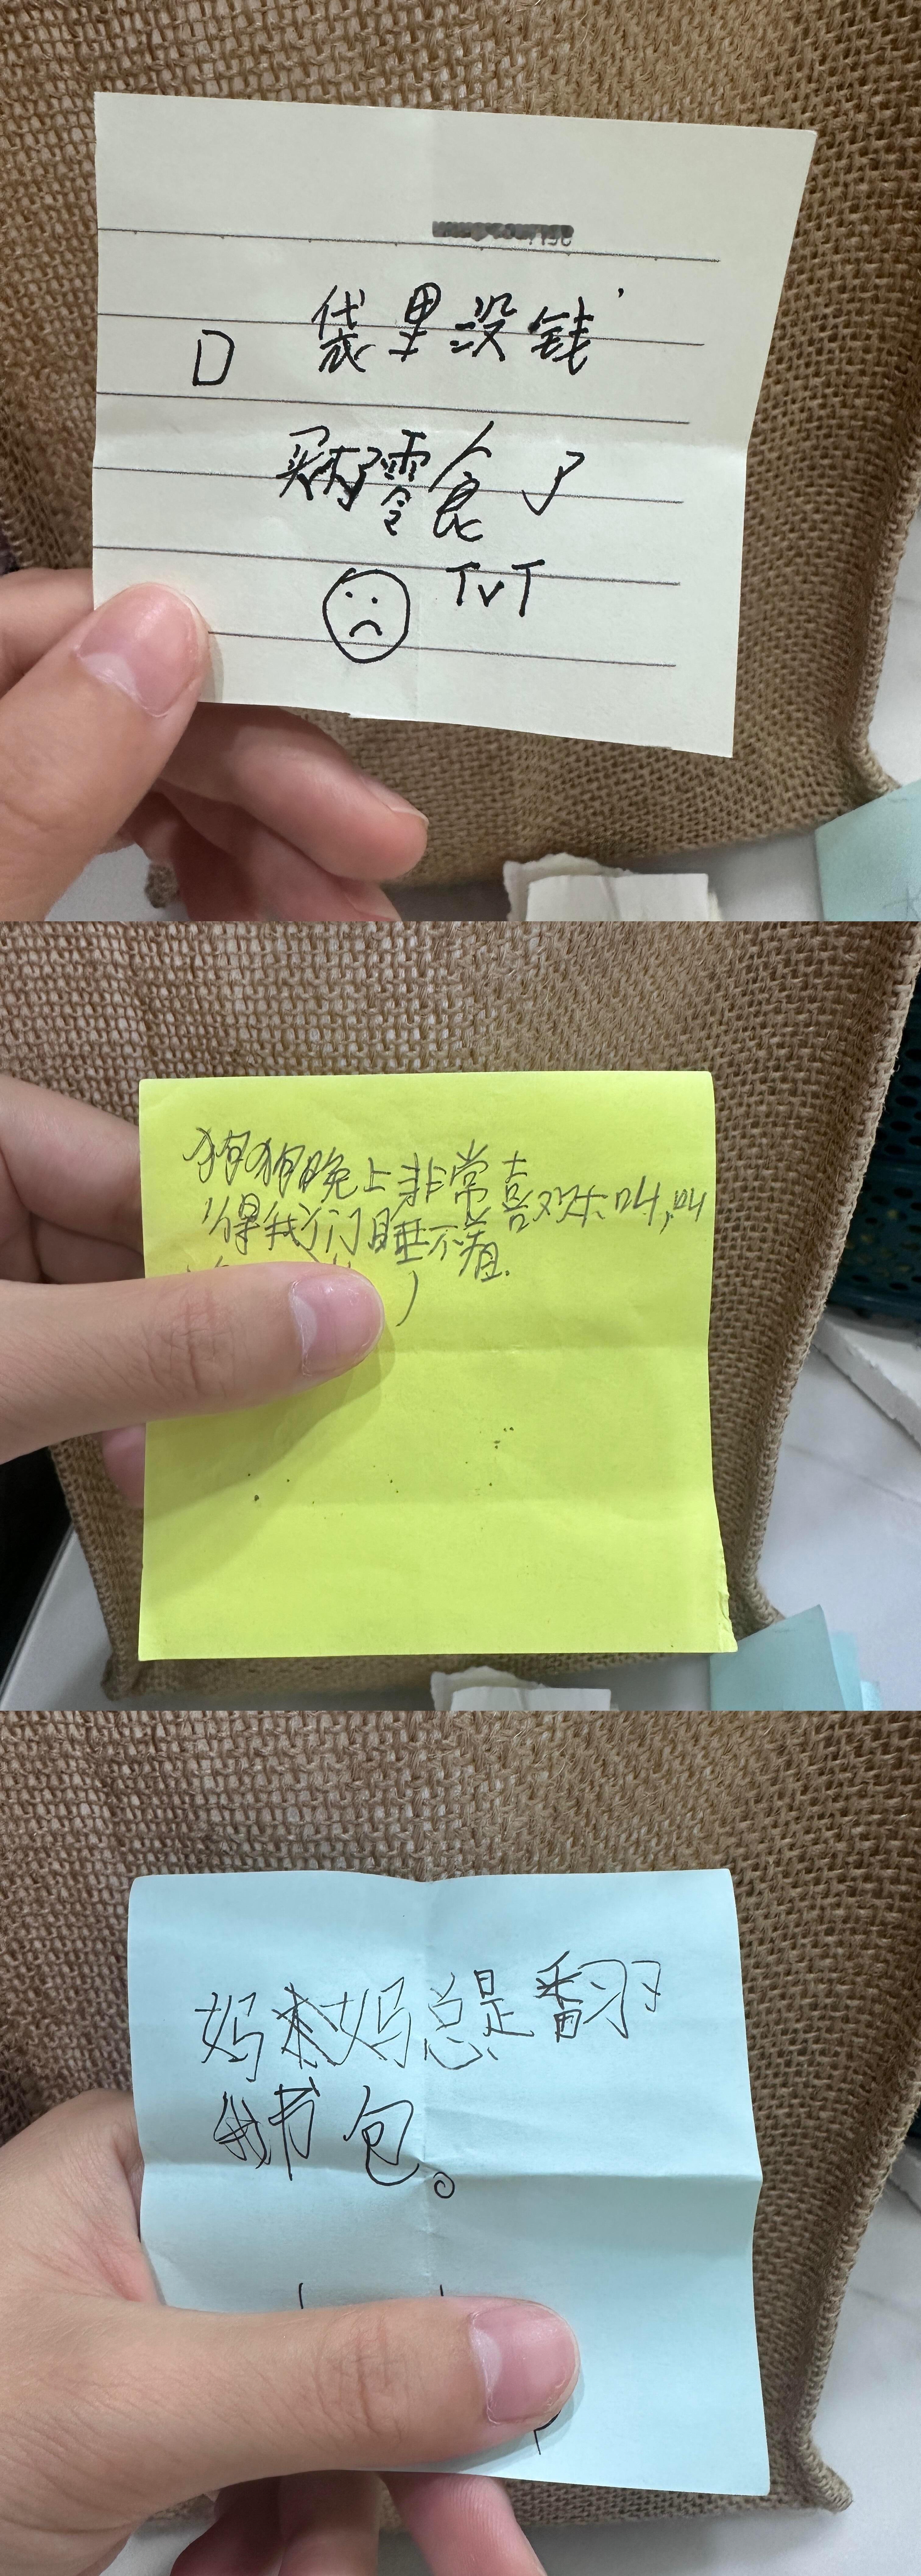 口袋里没钱,
买不了零食了
TvT
狗狗晚上非常喜欢叫,叫
得我们睡不着.
妈妈总是翻
我书包。